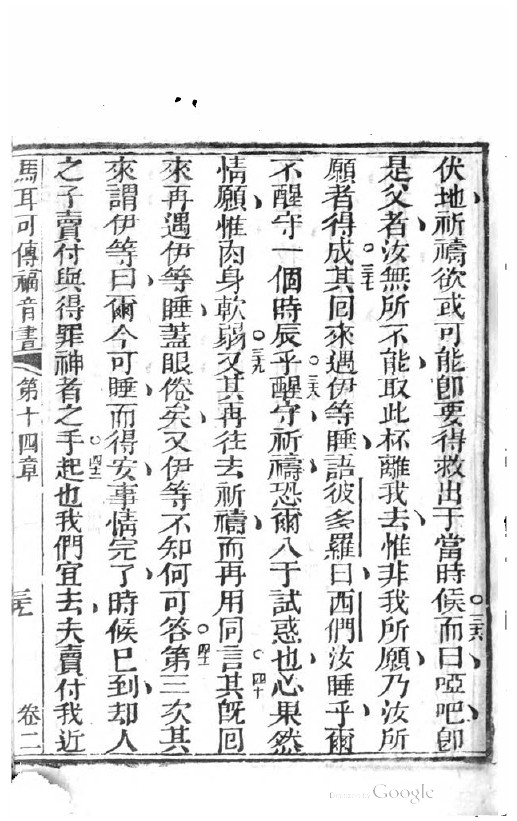 伏地祈禱欲或可能卽要得救出于當時候○三六而曰啞吧卽
是父者汝無所不能取此杯離我去惟非我所願乃汝所
願者得成○三七其回來遇伊等睡語彼多羅曰西們汝睡乎爾
不醒守一個時辰乎○三八醒守祈禱恐爾入于試惑也○四十心果然
情願惟肉身軟弱○三九又其再往去祈禱而再用同言其旣回
來再遇伊等睡蓋眼倦矣又伊等不知何可答○四一第三次其
來謂伊等曰爾今可睡而得安事情完了時候已到却人
之子賣付與得罪神者之手○四二起也我們宜去夫賣付我近
馬耳可傳福音書 第十四章 卷二
Digitized by Google